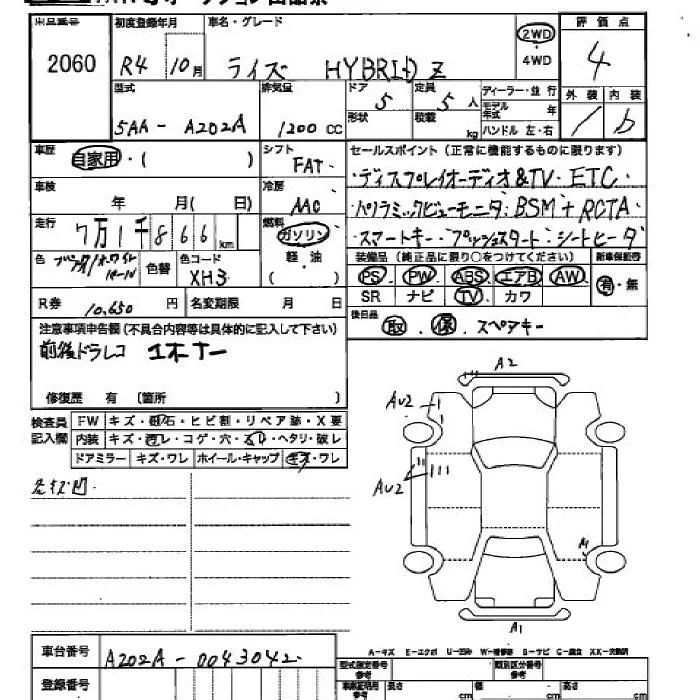 出品番号 初度登録年月 車名・グレード 2WD 4WD 評価点
2060 R4 10月 ライズ HYBRID Z 4
型式 排気量 ドア 5 定員 5人 ディーラー・並行 外装 内装
5AA - A202A 1200 cc 形状 積載 kg モデル年式 年 ハンドル 左・右 b
車歴 自家用・( ) シフト FAT セールスポイント(正常に機能するものに限ります)
車検 年 月( 日) 冷房 AAC ・ディスプレイオーディオ&TV・ETC・
走行 7万1千866km 燃料 ガソリン 軽・油 ( ) ・パノラミックビューモニタ・BSM+RCTA
・スマートキー・プッシュスタート・シートヒータ
色 色替 色コード XH3 装備品(純正品に限り○をつけてください) 新車保証書
PS PW ABS エアB AW 有・無
SR ナビ TV カワ
R券 10,650円 名変期限 月 日 後日品 取・保・スペアキー
注意事項申告欄(不具合内容等は具体的に記入して下さい)
前後ドラレコ
修復歴 有 〔箇所 〕
検査員記入欄 FW キズ・飛石・ヒビ割・リペア跡・X要
内装 キズ・汚レ・コゲ・穴・ヘタリ・破レ
ドアミラー キズ・ワレ ホイール・キャップ キズ・ワレ
A2
AU2
AU2
A1
A-キズ E-エクボ U-凹み W-補修跡 S-サビ C-腐食 XX-交換済
車台番号 A202A-0043042 型式指定番号 参考 類別区分番号 参考
登録番号 車庫証明用 参考 長さ cm 幅 cm 高さ cm